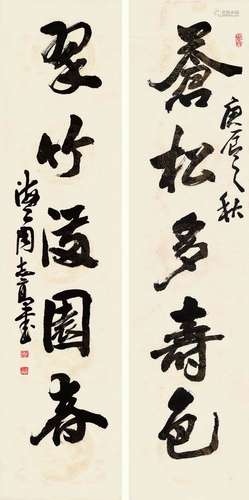 蒼松多壽色
庚寅之秋
翠竹滿園春
海上周志高書